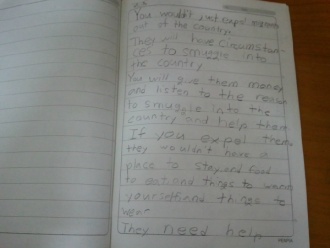 You wouldn't just expel
out of the country.
They will have circumstan-
ces to smuggle into
the country
You will give them money
and listen to the reason
to smuggle into the
country and help them
If you expel them
they wouldn't have a
place to stay and food
to eat and things to warm
yourself and things to
wear
They need help